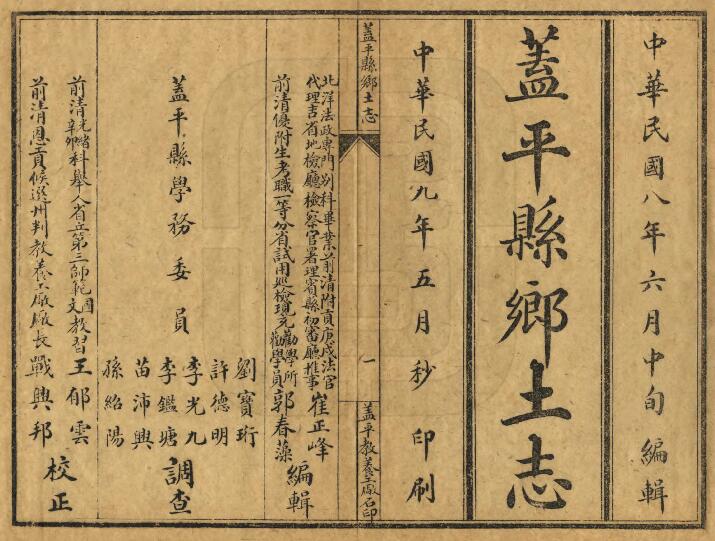 中華民國八年六月中旬編輯
蓋平縣鄉土志
中華民國九年五月秒印刷
蓋平縣鄉土志
一
蓋平教養工廠石印
北洋法政專門別科畢業前清附貢庚戌法官
代理吉省地檢廳檢察官署理賓縣初審廳推事
崔正峰
前清優附生考職一等分省試用巡檢現充勸學所勸學員郭春藻
編輯
蓋平縣學務委員
劉寶珩
許德明
李光九
李鑑塘
苗沛興
孫紹陽
調查
前清光緒辛卯科舉人省立第三師範國文教習王郁雲
前清恩貢候選州判教養工廠廠長戰興邦
校正